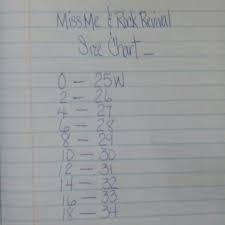 Miss Me & Rock Revival
Size Chart
0 - 25W
2 - 26
4 - 27
6 - 28
8 - 29
10 - 30
12 - 31
14 - 32
16 - 33
18 - 34